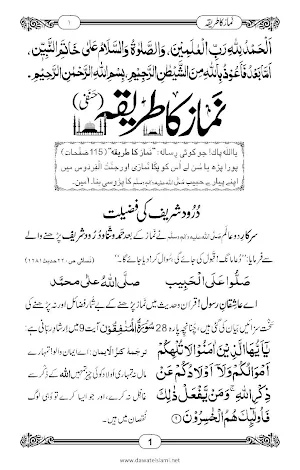 نماز کا طریقہ
۱
اَلْحَمْدُ لِلّٰہِ رَبِّ الْعٰلَمِیْنَ، وَالصَّلٰوۃُ وَالسَّلَامُ عَلٰی خَاتَمِ النَّبِیّٖن،
اَمَّا بَعْدُ فَاَعُوْذُ بِاللّٰہِ مِنَ الشَّیْطٰنِ الرَّجِیْمِ، بِسْمِ اللّٰہِ الرَّحْمٰنِ الرَّحِیْمِ،
نماز کا طریقہ (حنفی)
یا اللہ پاک! جو کوئی رسالہ: ”نماز کا طریقہ“ (115 صفحات)
پورا پڑھ یا سُن لے اُس کو پکّا نمازی اور جنّتُ الْفِردَوس میں
اپنے پیارے حبیب صلی اللہ علیہ والہ وسلم کا پڑوسی بنا۔ اٰمین۔
دُرود شریف کی فضیلت
سرکارِ دو عالم صلی اللہ علیہ والہ وسلم نے نماز کے بعد حمد و ثنا و دُرود شریف پڑھنے والے
سے فرمایا: ”دُعا مانگ! قبول کی جائے گی، سُوال کر! دیا جائے گا۔“ (نسائی ص۲۲۰ حدیث ۱۲۸۱)
صَلُّوا عَلَی الْحَبِیب صلَّی اللهُ علٰی محمَّد
اے عاشِقانِ رسول! قرآن و حدیث میں نماز پڑھنے کے بے شُمار فضائل اور نہ پڑھنے کی
سَخْت سزائیں بیان کی گئی ہیں، چنانچِہ پارہ 28 سُوْرَۃُ الْمُنٰفِقُوْنَ آیت 9 میں ارشادِ ربّانی ہے:
یٰۤاَیُّهَا الَّذِیْنَ اٰمَنُوْا لَا تُلْهِكُمْ ترجَمۂ کنزُ الایمان: اے ایمان والو! تمہارے
اَمْوَالُكُمْ وَ لَاۤ اَوْلَادُكُمْ عَنْ مال نہ تمہاری اولاد کوئی چیز تمہیں اللہ کے ذِکر سے
ذِكْرِ اللّٰهِۚ وَ مَنْ یَّفْعَلْ ذٰلِكَ غافِل نہ کرے، اور جو ایسا کرے تو وُہی لوگ
فَاُولٰٓىٕكَ هُمُ الْخٰسِرُوْنَ ۹ نقصان میں ہیں۔
1
www.dawateislami.net